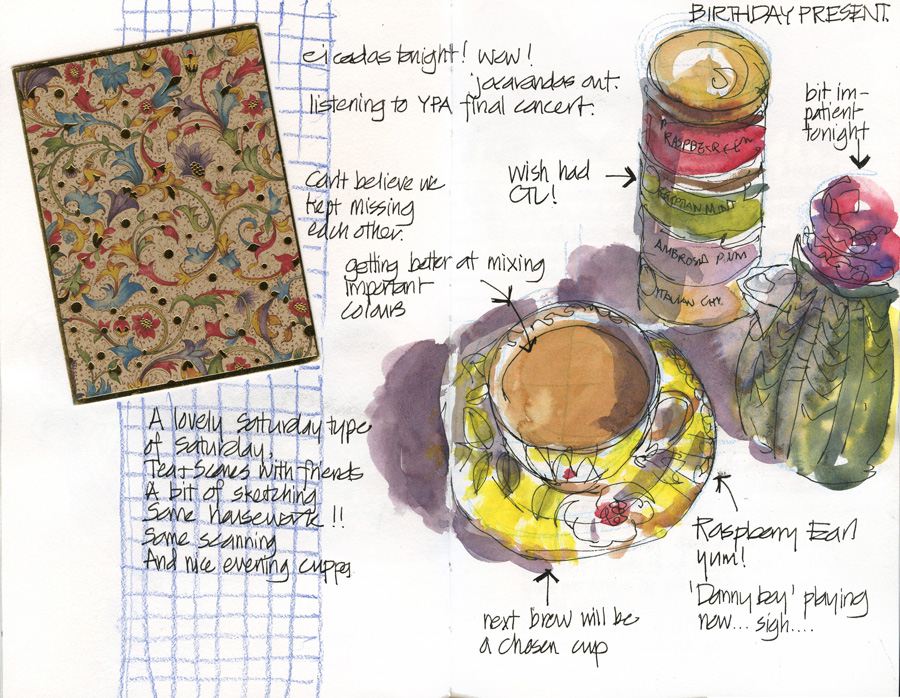 BIRTHDAY PRESENT.
cicadas tonight! wow!
jacarandas out.
listening to YPA final concert.
bit im-
patient
tonight
wish had
CTL!
RASPBERRY
MINT
AMBROSIA PLUM
ITALIAN
Can't believe we
kept missing
each other.
getting better at mixing
important
colours
A lovely saturday type
of saturday,
Tea + Scones with friends
A bit of sketching
Some housework!!
Some scanning
And nice evening cuppa
Raspberry Earl
yum!
'Danny boy' playing
now... sigh....
next brew will be
a chosen cup